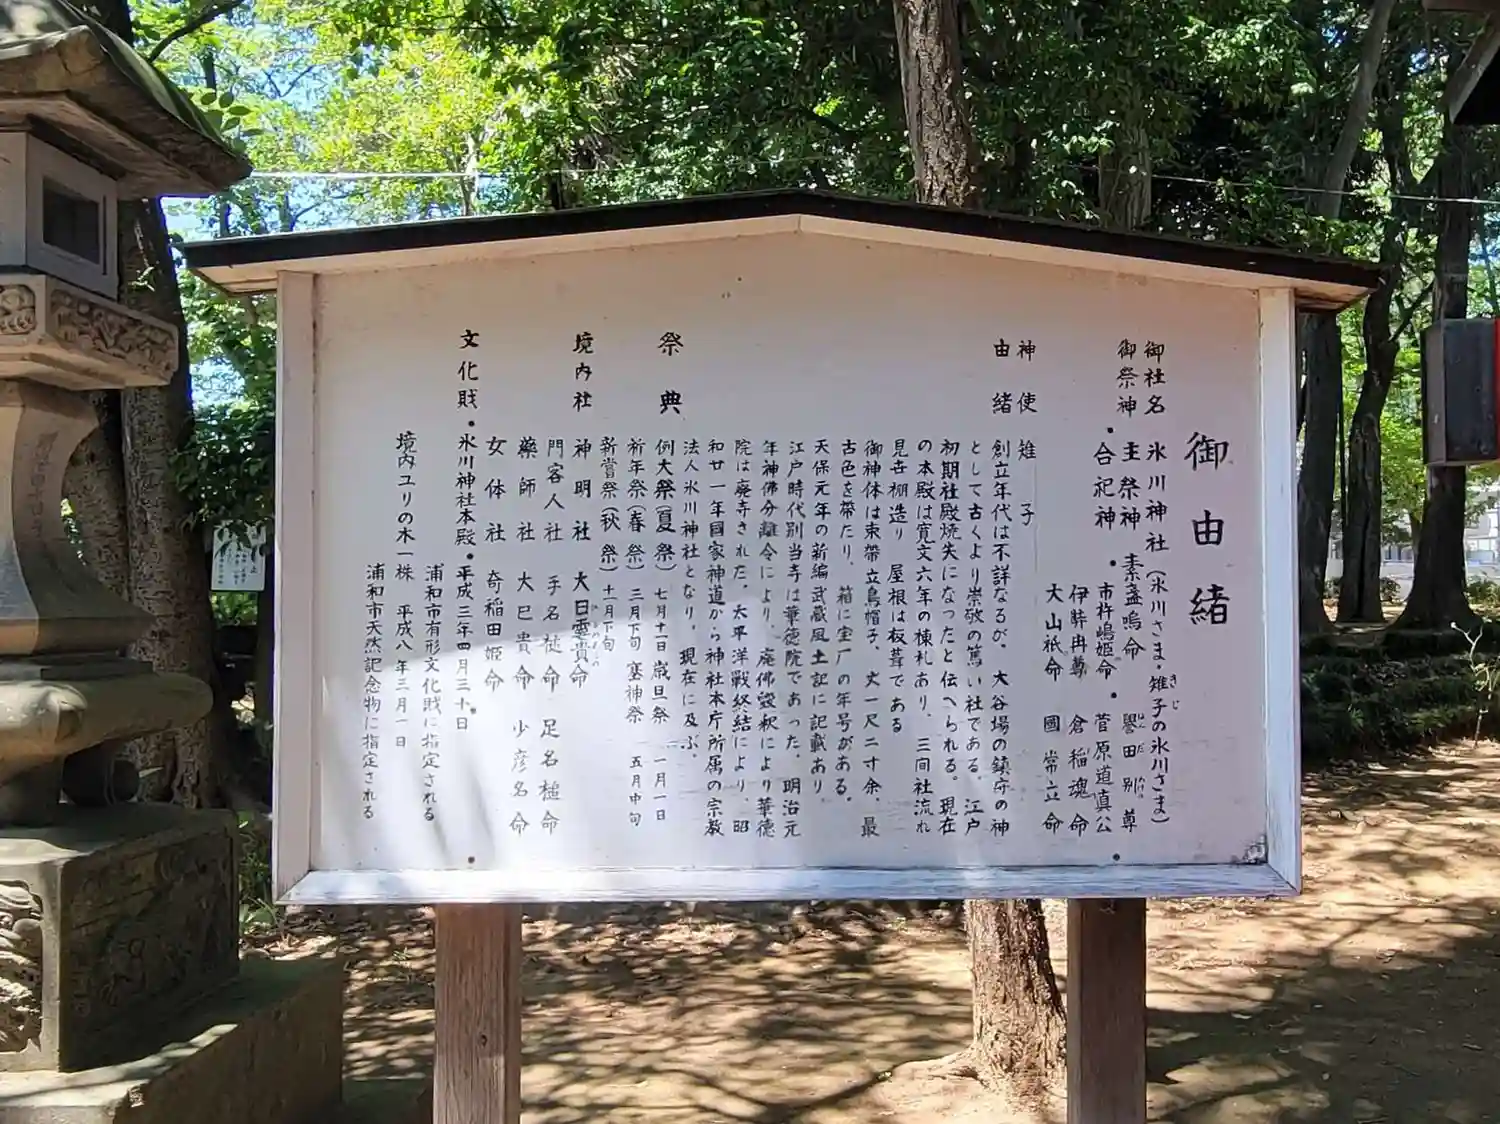 御由緒
御社名 氷川神社(氷川さま・雉子の氷川さま)
きじ
御祭神・主祭神 素盞嗚命 譽田別尊
ほんだわけ
・合祀神・市杵嶋姫命・菅原道真公
伊弉冉尊 倉稲魂命
大山祇命 國常立命
神使 雉子
由緒 創立年代は不詳なるが、大谷場の鎮守の神
として古くより崇敬の篤い社である。江戸
初期社殿焼失になったと伝へられる。現在
の本殿は寛文六年の棟札あり、三間社流れ
見世棚造り 屋根は板葺である
御神体は束帶立烏帽子、丈一尺二寸余、最
古色を帯たり、箱に宝厂の年号がある。
天保元年の新編武蔵風土記に記載あり
江戸時代別当寺は華徳院であった。明治元
年神佛分離令により、廃佛毀釈により華徳
院は廃寺された。太平洋戦終結により、昭
和廿一年國家神道から神社本庁所属の宗教
法人氷川神社となり、現在に及ぶ。
祭典 例大祭(夏祭) 七月十一日 歳旦祭 一月一日
祈年祭(春祭) 三月下旬 塞神祭 五月中旬
新嘗祭(秋祭) 十一月下旬
境内社 神明社 大日孁貴命
門客人社 手名槌命 足名槌命
藥師社 大巳貴命 少彦名命
女体社 奇稲田姫命
文化財・氷川神社本殿・平成三年四月三十日
浦和市有形文化財に指定される
境内ユリの木一株 平成八年三月一日
浦和市天然記念物に指定される